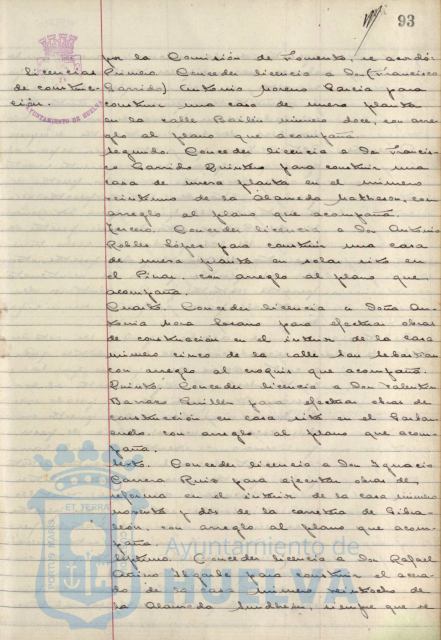 93
por la Comisión de Fomento, se acordó:
Licencias de construcción.
Primero. Conceder licencia a Don (Francisco
Garrido) Antonio Moreno García para
construir una casa de nueva planta
en la calle Bailén número doce, con arre-
glo al plano que acompaña.
Segundo. Conceder licencia a Don Francis-
co Garrido Quintero para construir una
casa de nueva planta en el número
veintiuno de la Alameda, con
arreglo al plano que acompaña.
Tercero. Conceder licencia a Don Antonio
Robles López para construir una casa
de nueva planta en solar sito en
el Pinar, con arreglo al plano que
acompaña.
Cuarto. Conceder licencia a Doña An-
tonia Mora para efectuar obras
de construcción en el interior de la casa
número cinco de la calle San Sebastián
con arreglo al croquis que acompaña.
Quinto. Conceder licencia a Don Valentín
para efectuar obras de
construcción en casa sita en el
con arreglo al plano que acom-
paña.
Sexto. Conceder licencia a Don Ignacio
Carrera Ruiz para ejecutar obras de
reforma en el interior de la casa número
noventa y dos de la carretera de Gibra-
león, con arreglo al plano que acom-
paña.
Séptimo. Conceder licencia a Don Rafael
para construir el acera-
do de la casa número veintiocho de
la Alameda Sundheim, siempre que se
AYUNTAMIENTO DE HUELVA
Ayuntamiento de
HUELVA
PORTUS MARIS
ET TERRAE